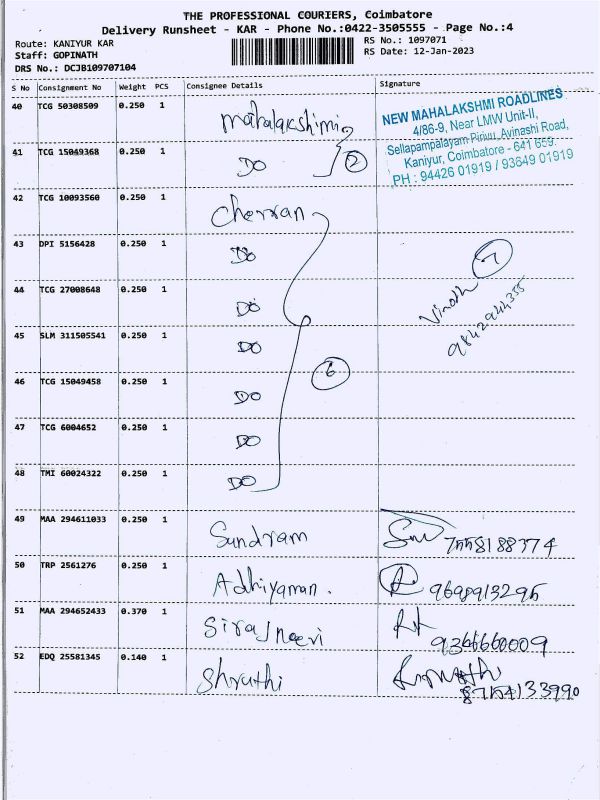 THE PROFESSIONAL COURIERS, Coimbatore
Delivery Runsheet - KAR - Phone No.:0422-3505555 - Page No.:4
Route: KANIYUR KAR
RS No.: 1097071
Staff: GOPINATH
RS Date: 12-Jan-2023
DRS No.: DCJB109707104
S No Consignment No Weight PCS Consignee Details Signature
40 TCG 50308509 0.250 1 Mahalakshimi
NEW MAHALAKSHMI ROADLINES
4/86-9, Near LMW Unit-II,
Sellapampalayam Pirivu, Avinashi Road,
Kaniyur, Coimbatore - 641 659.
PH : 94426 01919 / 93649 01919
41 TCG 15049368 0.250 1 DO 2
42 TCG 10093560 0.250 1 Cherran
43 DPI 5156428 0.250 1 DO 7
44 TCG 27008648 0.250 1 DO Vinoth
9842944355
45 SLM 311505541 0.250 1 DO
46 TCG 15049458 0.250 1 DO 6
47 TCG 6004652 0.250 1 DO
48 TMI 60024322 0.250 1 DO
49 MAA 294611033 0.250 1 Sundram 7558188374
50 TRP 2561276 0.250 1 Adhiyaman. 9698913295
51 MAA 294652433 0.370 1 Siraj 9366660009
52 EDQ 25581345 0.140 1 Shruthi 8754133990